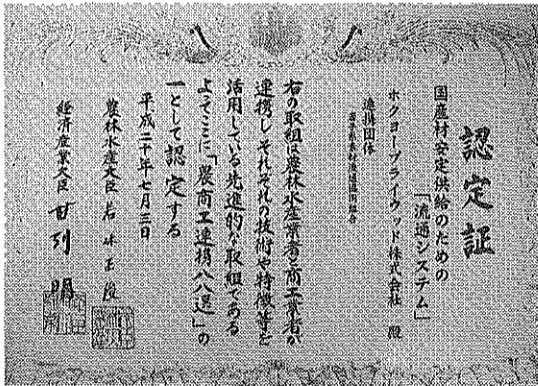 認定証
国産材安定供給のための
「流通システム」
ホクヨープライウッド株式会社 殿
連携団体
岩手県素材流通協同組合
右の取組は農林水産業者と商工業者が
連携しそれぞれの技術や特徴等を
活用している先進的な取組である
よってここに「農商工連携八八選」の
一として認定する
平成二十年七月三日
農林水産大臣 若林正俊
経済産業大臣 甘利 明